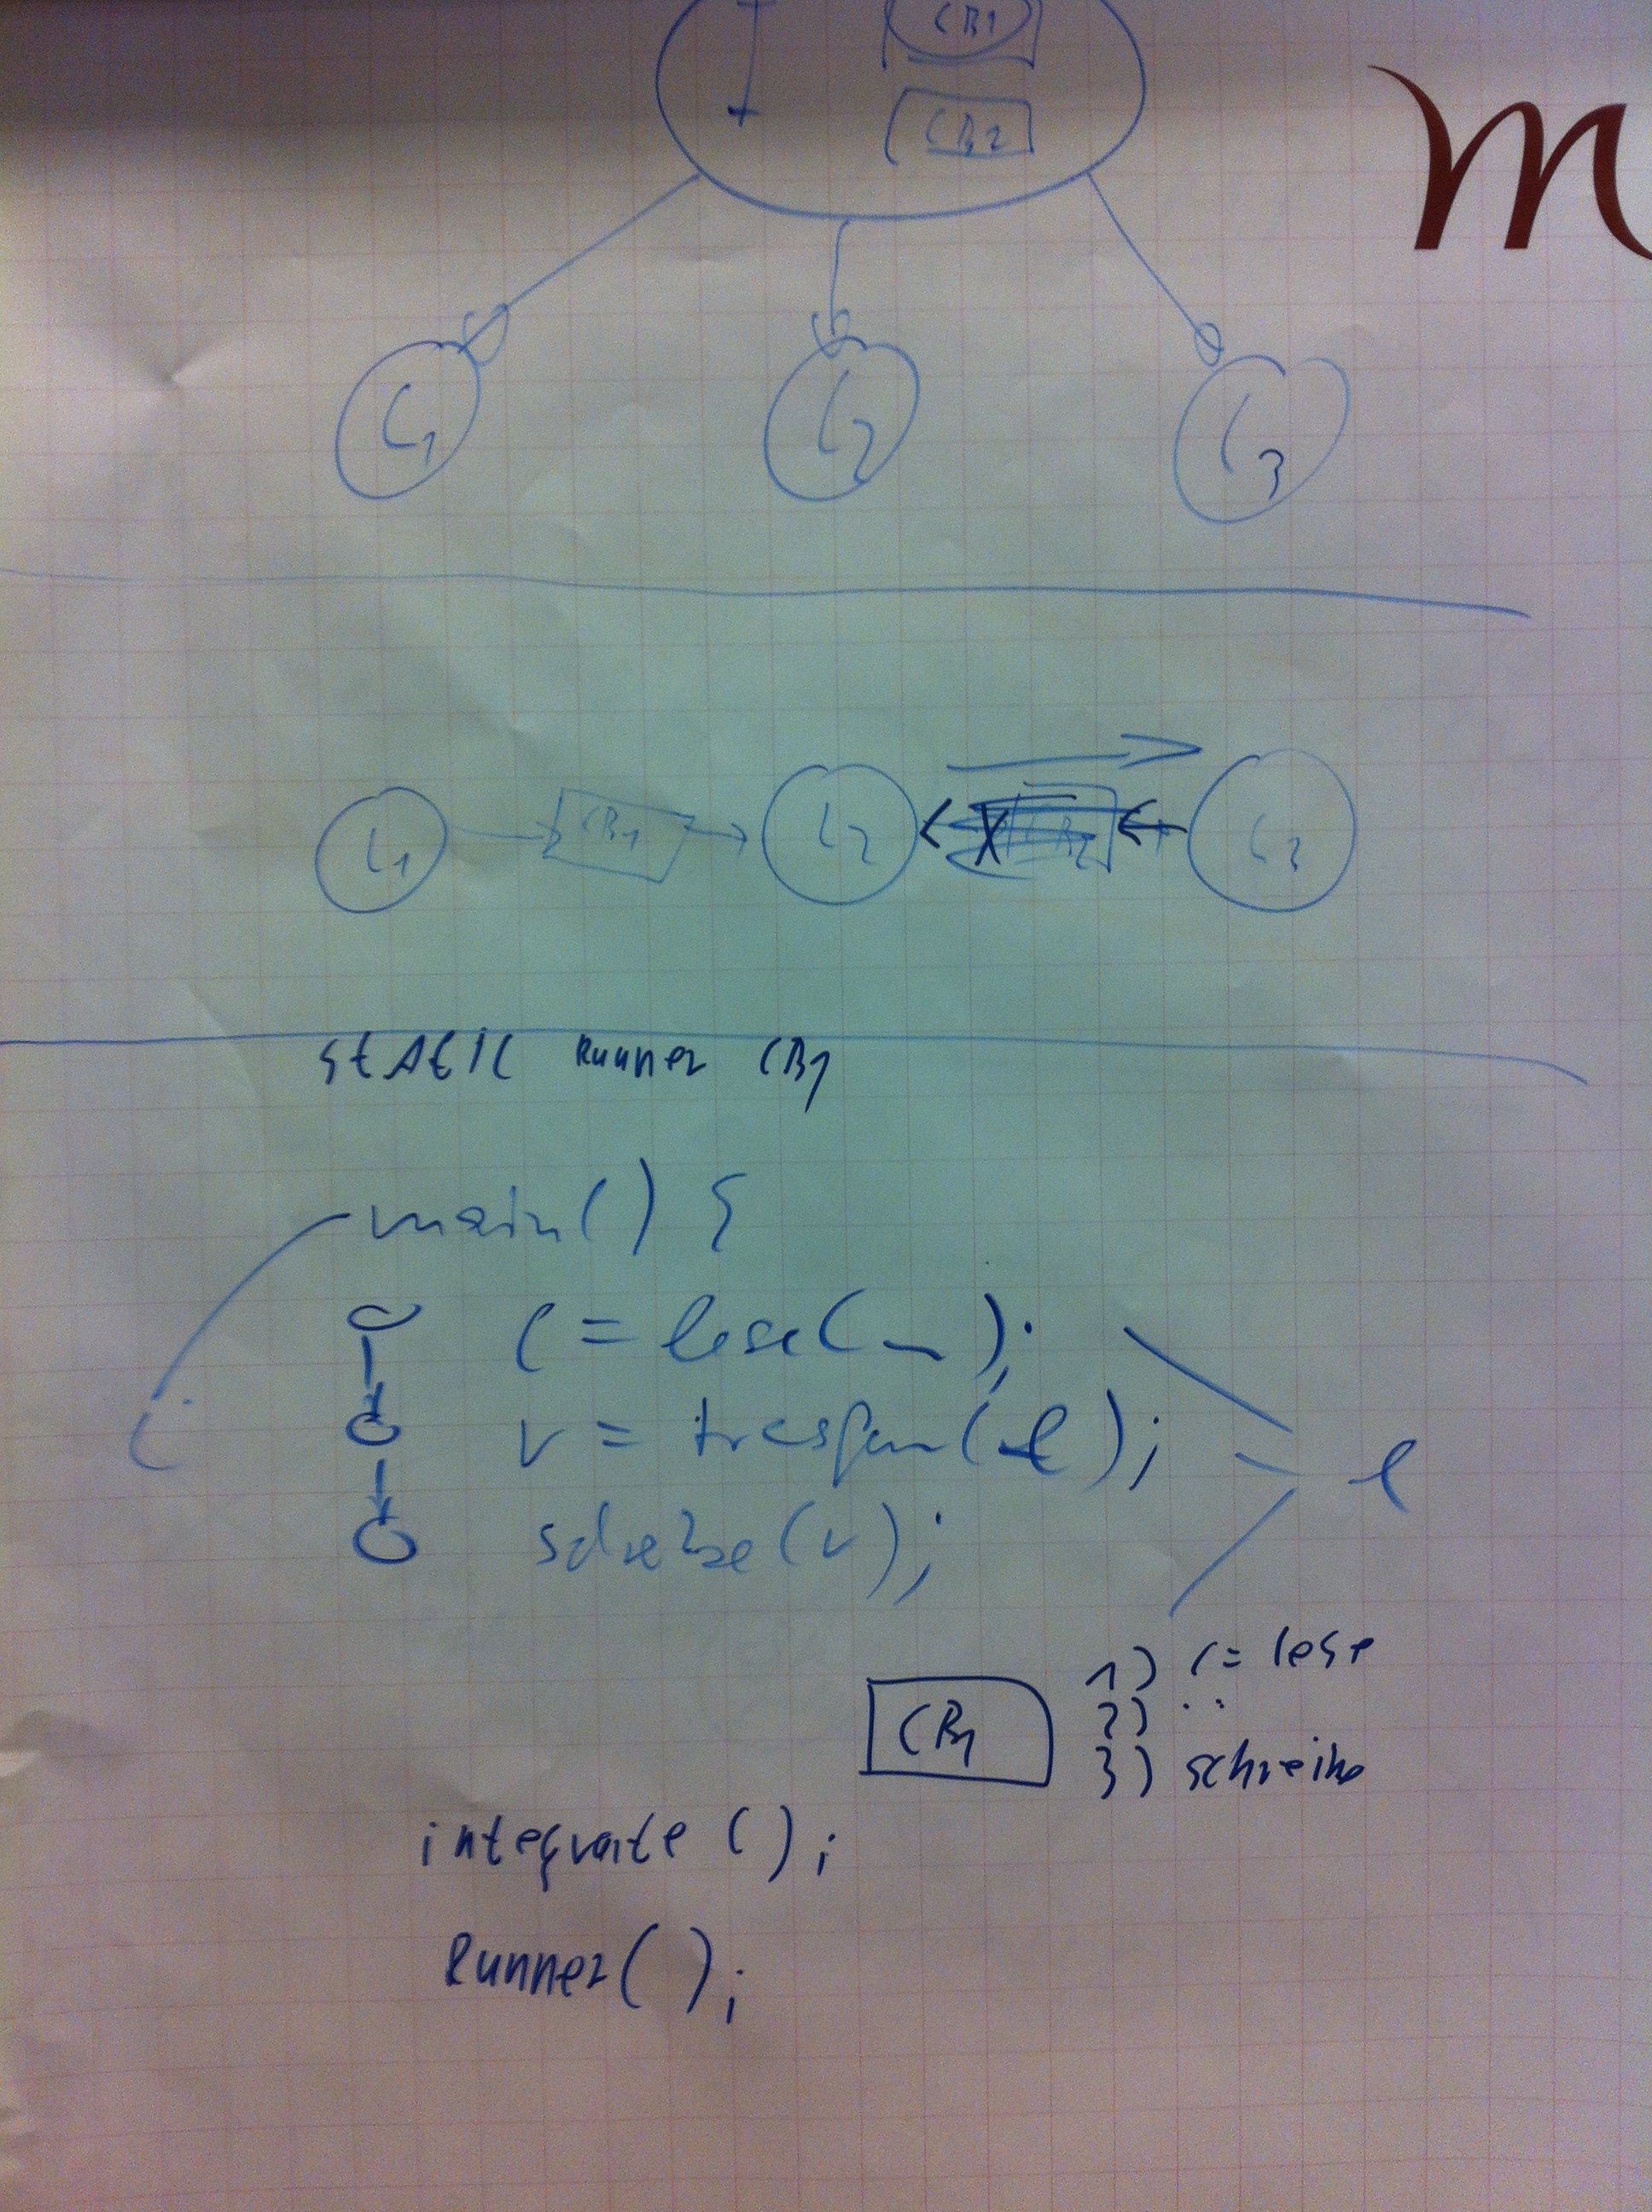 CB1
CB2
m
C1 C2 C3
C1 CB1 C2 CB2 C3
STATIC Runner CB1
main() {
l = lese( );
v = trasfom(l); l
schreibe(v);
1) l = lese
CB1 2) ..
3) schreibe
integrate ();
Runner();